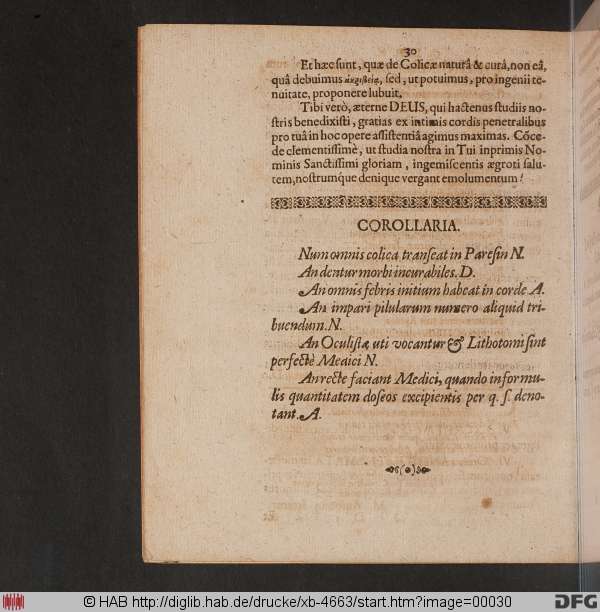 30
Et hæc sunt, quæ de Colicæ naturâ & curâ, non eâ,
quâ debuimus ἀκριβείᾳ, sed, ut potuimus, pro ingenii te-
nuitate, proponere lubuit.
Tibi verò, æterne DEUS, qui hactenus studiis no-
stris benedixisti, gratias ex intimis cordis penetralibus
pro tuâ in hoc opere assistentiâ agimus maximas. Cōce-
de clementissimè, ut studia nostra in Tui inprimis No-
minis Sanctissimi gloriam, ingemiscentis ægroti salu-
tem, nostrumque denique vergant emolumentum!
COROLLARIA.
Num omnis colica transeat in Paresin N.
An dentur morbi incurabiles. D.
An omnis febris initium habeat in corde A.
An impari pilularum numero aliquid tri-
buendum. N.
An Oculistæ uti vocantur & Lithotomi sint
perfectè Medici N.
An rectè faciant Medici, quando in formu-
lis quantitatem doseos excipientis per q. s. deno-
tant. A.
© HAB http://diglib.hab.de/drucke/xb-4663/start.htm?image=00030
DFG